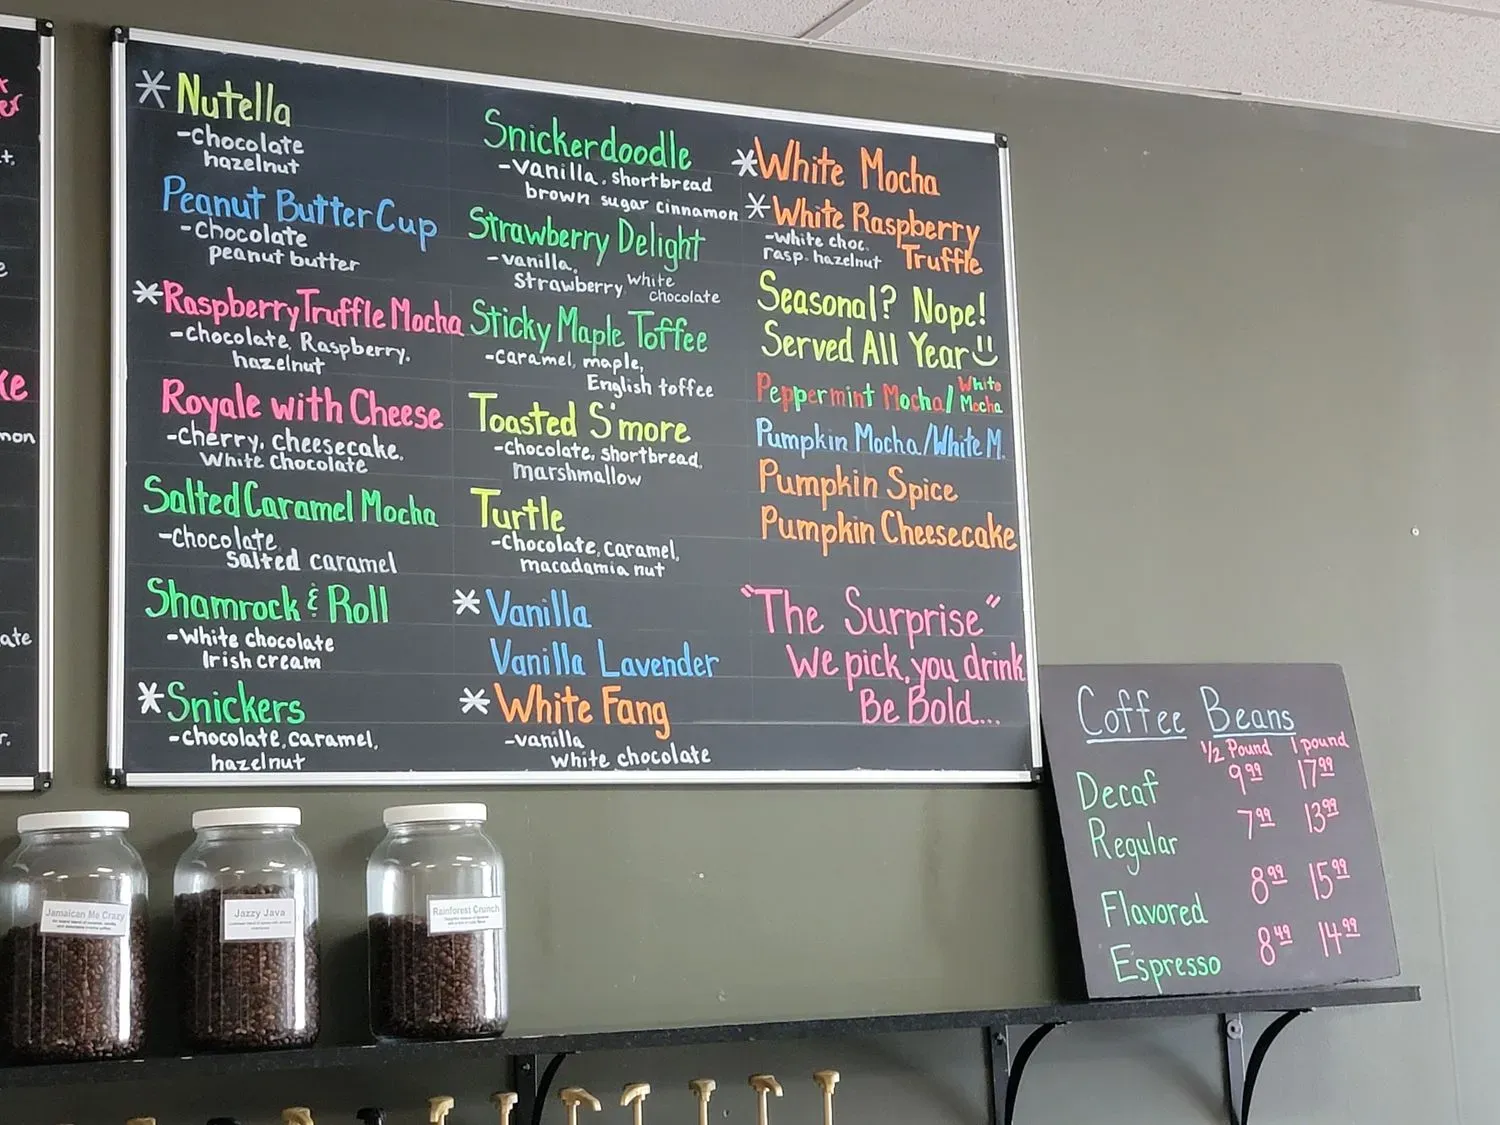 *Nutella
-chocolate
hazelnut
Peanut Butter Cup
-chocolate
peanut butter
*Raspberry Truffle Mocha
-chocolate, Raspberry,
hazelnut
Royale with Cheese
-cherry, cheesecake,
White chocolate
Salted Caramel Mocha
-chocolate,
salted caramel
Shamrock & Roll
-White chocolate
Irish cream
*Snickers
-chocolate, caramel,
hazelnut
Snickerdoodle
-vanilla, shortbread
brown sugar cinnamon
Strawberry Delight
-vanilla,
Strawberry, white
chocolate
Sticky Maple Toffee
-caramel, maple,
English toffee
Toasted S'more
-chocolate, shortbread,
marshmallow
Turtle
-chocolate, caramel,
macadamia nut
*Vanilla
Vanilla Lavender
*White Fang
-vanilla
white chocolate
*White Mocha
*White Raspberry
Truffle
-white choc.
rasp. hazelnut
Seasonal? Nope!
Served All Year
Peppermint Mocha/White
Mocha
Pumpkin Mocha/White M.
Pumpkin Spice
Pumpkin Cheesecake
"The Surprise"
We pick, you drink
Be Bold...
Coffee Beans
1/2 Pound 1 pound
Decaf 9.99 17.99
Regular 7.99 13.99
Flavored 8.99 15.99
Espresso 8.49 14.99
Jamaican Me Crazy
Jazzy Java
Rainforest Crunch